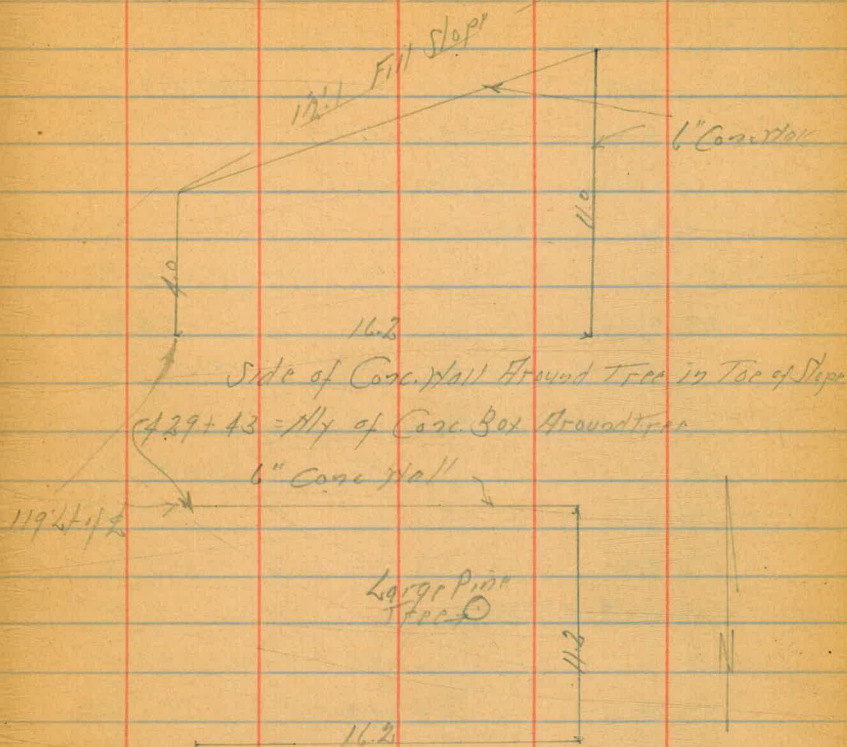 Fill Slope
6" Conc. Wall
11.0
4.0
16.2
Side of Conc. Wall Around Tree in Toe of Slope
429+43 = Nly of Conc. Box Around Tree
6" Conc Wall
119' Lt of ℄
Large Pine
Tree
11.2
N
16.2